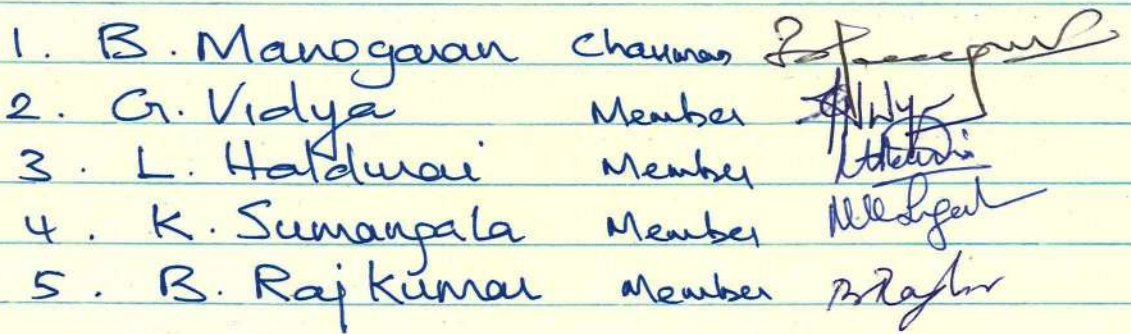 1. B. Manogaran Chairman
2. G. Vidya Member
3. L. Haldwai Member
4. K. Sumangala Member
5. B. Rajkumar Member